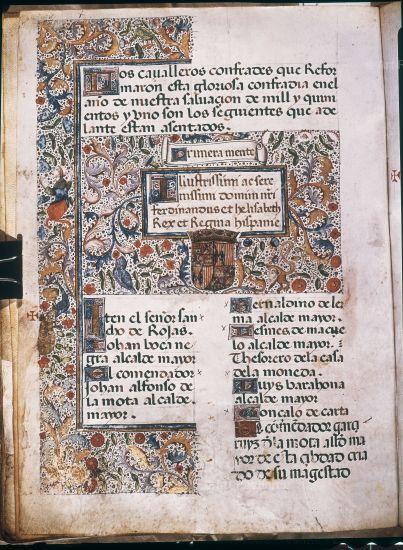 Los caualleros confrades que Refor
maron esta gloriosa confradia en el
año de nuestra saluacion de mill y quini
entos y vno son los seguientes que ade
lante estan asentados.
Primera mente
Illustrissimi ac sere
nissimi domini nri
ferdinandus et helisabeth
Rex et Regina hispanie
Iten el señor san
cho de Rojas.
Johan boca ne
gra alcalde mayor
El comendador
johan alfonso de
la mota alcalde
mayor.
Bernaldino de ler
ma alcalde mayor.
Jesines de macue
lo alcalde mayor.
Thesorero dela casa
dela moneda.
Luys barahona
alcalde mayor
Goncalo de carta
El comēdador garçi
ruyz dla mota alcll ma
yor de esta cibdad cria
do de su magestad